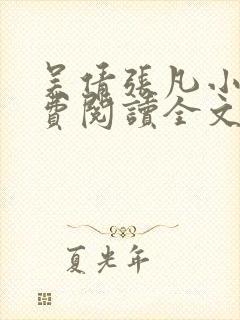 吴倩張凡小
費閱讀全文
夏光年